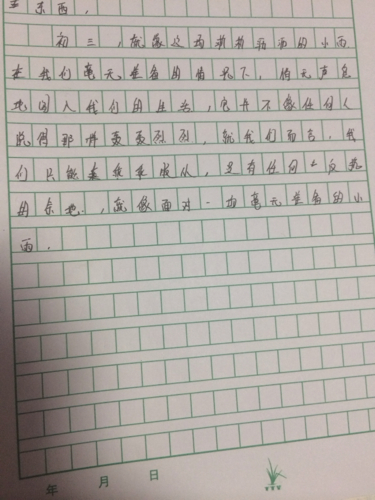 些东西。
初三,就像这场淅淅沥沥的小雨
在我们毫无准备的情况下,悄无声息
地闯入我们的生活,它并不像任何人
说得那样轰轰烈烈,就我们而言,我
们只能乖乖服从,没有任何反抗
的余地,就像面对一场毫无准备的小
雨。
年 月 日